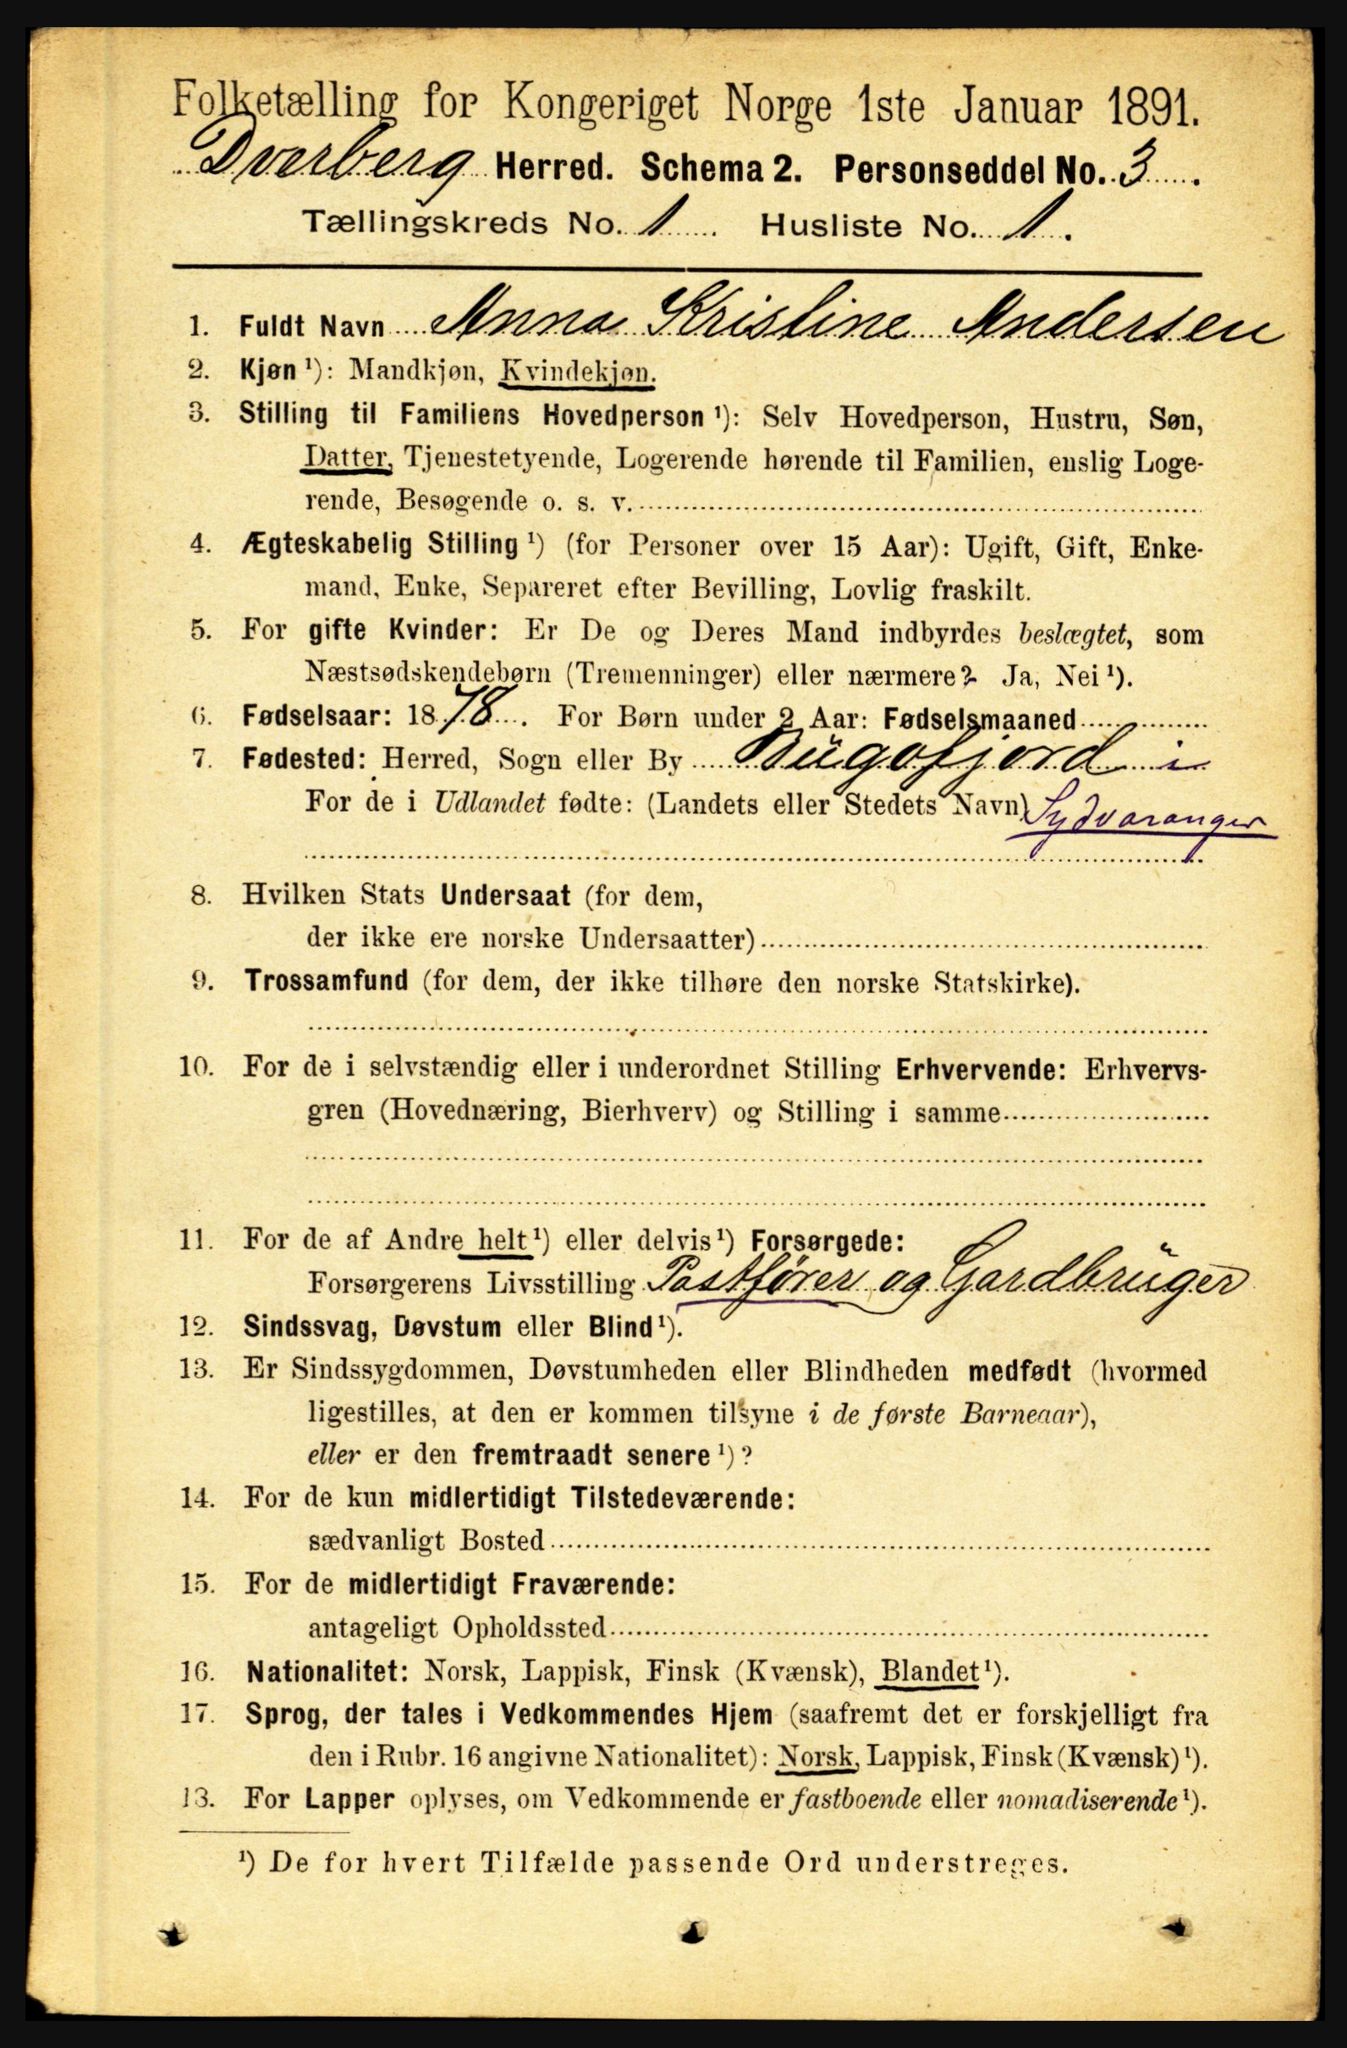 Folketælling for Kongeriget Norge 1ste Januar 1891.
Dverberg Herred. Schema 2. Personseddel No. 3
Tællingskreds No. 1 Husliste No. 1.
1. Fuldt Navn Anna Kristine Andersen
2. Kjøn ¹): Mandkjøn, Kvindekjøn.
3. Stilling til Familiens Hovedperson ¹): Selv Hovedperson, Hustru, Søn,
Datter, Tjenestetyende, Logerende hørende til Familien, enslig Loge-
rende, Besøgende o. s. v.
4. Ægteskabelig Stilling ¹) (for Personer over 15 Aar): Ugift, Gift, Enke-
mand, Enke, Separeret efter Bevilling, Lovlig fraskilt.
5. For gifte Kvinder: Er De og Deres Mand indbyrdes beslægtet, som
Næstsødskendebørn (Tremenninger) eller nærmere? Ja, Nei ¹).
6. Fødselsaar: 1878. For Børn under 2 Aar: Fødselsmaaned
7. Fødested: Herred, Sogn eller By Bugøfjord i
For de i Udlandet fødte: (Landets eller Stedets Navn) Sydvaranger
8. Hvilken Stats Undersaat (for dem,
der ikke ere norske Undersaatter)
9. Trossamfund (for dem, der ikke tilhøre den norske Statskirke).
10. For de i selvstændig eller i underordnet Stilling Erhvervende: Erhvervs-
gren (Hovednæring, Bierhverv) og Stilling i samme
11. For de af Andre helt ¹) eller delvis ¹) Forsørgede:
Forsørgerens Livsstilling Postfører og Gardbrüger
12. Sindssvag, Døvstum eller Blind ¹).
13. Er Sindssygdommen, Døvstumheden eller Blindheden medfødt (hvormed
ligestilles, at den er kommen tilsyne i de første Barneaar),
eller er den fremtraadt senere ¹)?
14. For de kun midlertidigt Tilstedeværende:
sædvanligt Bosted
15. For de midlertidigt Fraværende:
antageligt Opholdssted
16. Nationalitet: Norsk, Lappisk, Finsk (Kvænsk), Blandet ¹).
17. Sprog, der tales i Vedkommendes Hjem (saafremt det er forskjelligt fra
den i Rubr. 16 angivne Nationalitet): Norsk, Lappisk, Finsk (Kvænsk) ¹).
13. For Lapper oplyses, om Vedkommende er fastboende eller nomadiserende ¹).
¹) De for hvert Tilfælde passende Ord understreges.